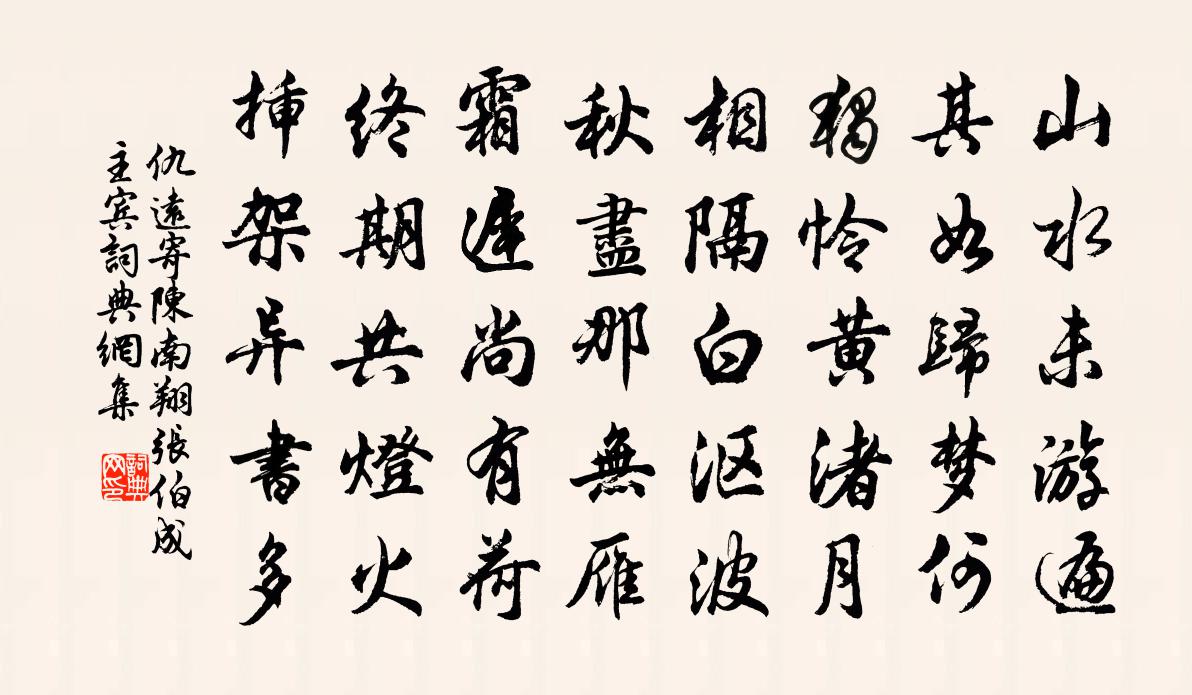 山水未游遍
其如歸梦何
獨怜黄渚月
相隔白沤波
秋盡那無雁
霜遲尚有荷
终期共燈火
揷架异書多
仇遠寄陳南翔張伯成
主宾詞典網集
詞典网印